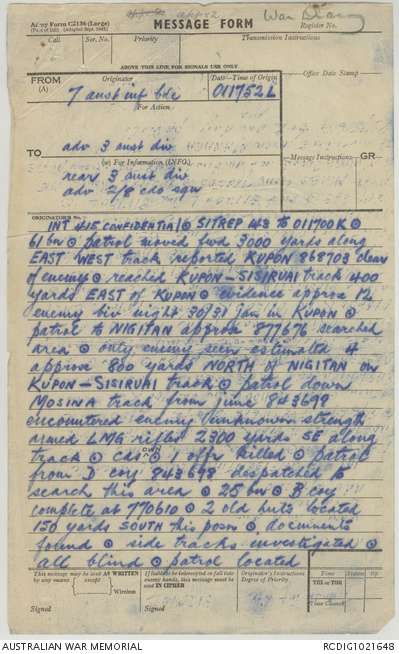 Army Form C2136 (Large)
MESSAGE FORM
War Diary
Register No.
Call
Ser. No.
Priority
Transmission Instructions
ABOVE THIS LINE FOR SIGNALS USE ONLY
FROM
(A)
Originator
Date-Time of Origin
Office Date Stamp
7 aust inf bde
011752L
For Action
TO
adv 3 aust div
(w) For Information (INFO)
Message Instructions
GR
rear 3 aust div
adv 2/8 cdo sqn
ORIGINATOR'S No.
INT 415 CONFIDENTIAL ⊙ SITREP 43 to 011700K ⊙
61 bn ⊙ patrol moved fwd 3000 yards along
EAST WEST track reported KUPON 868703 clear
of enemy ⊙ reached KUPON-SISIRUAI track 400
yards EAST of KUPON ⊙ evidence approx 12
enemy biv night 30/31 jan in KUPON ⊙
patrol to NIGITAN approx 877676 searched
area ⊙ only enemy seen estimated 4
approx 800 yards NORTH of NIGITAN on
KUPON-SISIRUAI track ⊙ patrol down
MOSINA track from junc 843699
encountered enemy unknown strength
armed LMG rifles 2300 yards SE along
track ⊙ cas own 1 offr killed ⊙ patrol
from D coy 843698 despatched to
search this area ⊙ 25 bn ⊙ B coy
complete at 770610 ⊙ 2 old huts located
150 yards SOUTH this posn ⊙ documents
found ⊙ side tracks investigated ⊙
all blind ⊙ patrol located
This message may be sent AS WRITTEN
by any means
except
Wireless
If liable to be intercepted or fall into
enemy hands, this message must be
sent IN CIPHER
Originator's Instructions
Degree of Priority
Time
System
Op
THI or TOR
Time Cleared
Signed
Signed
AUSTRALIAN WAR MEMORIAL
RCDIG1021648